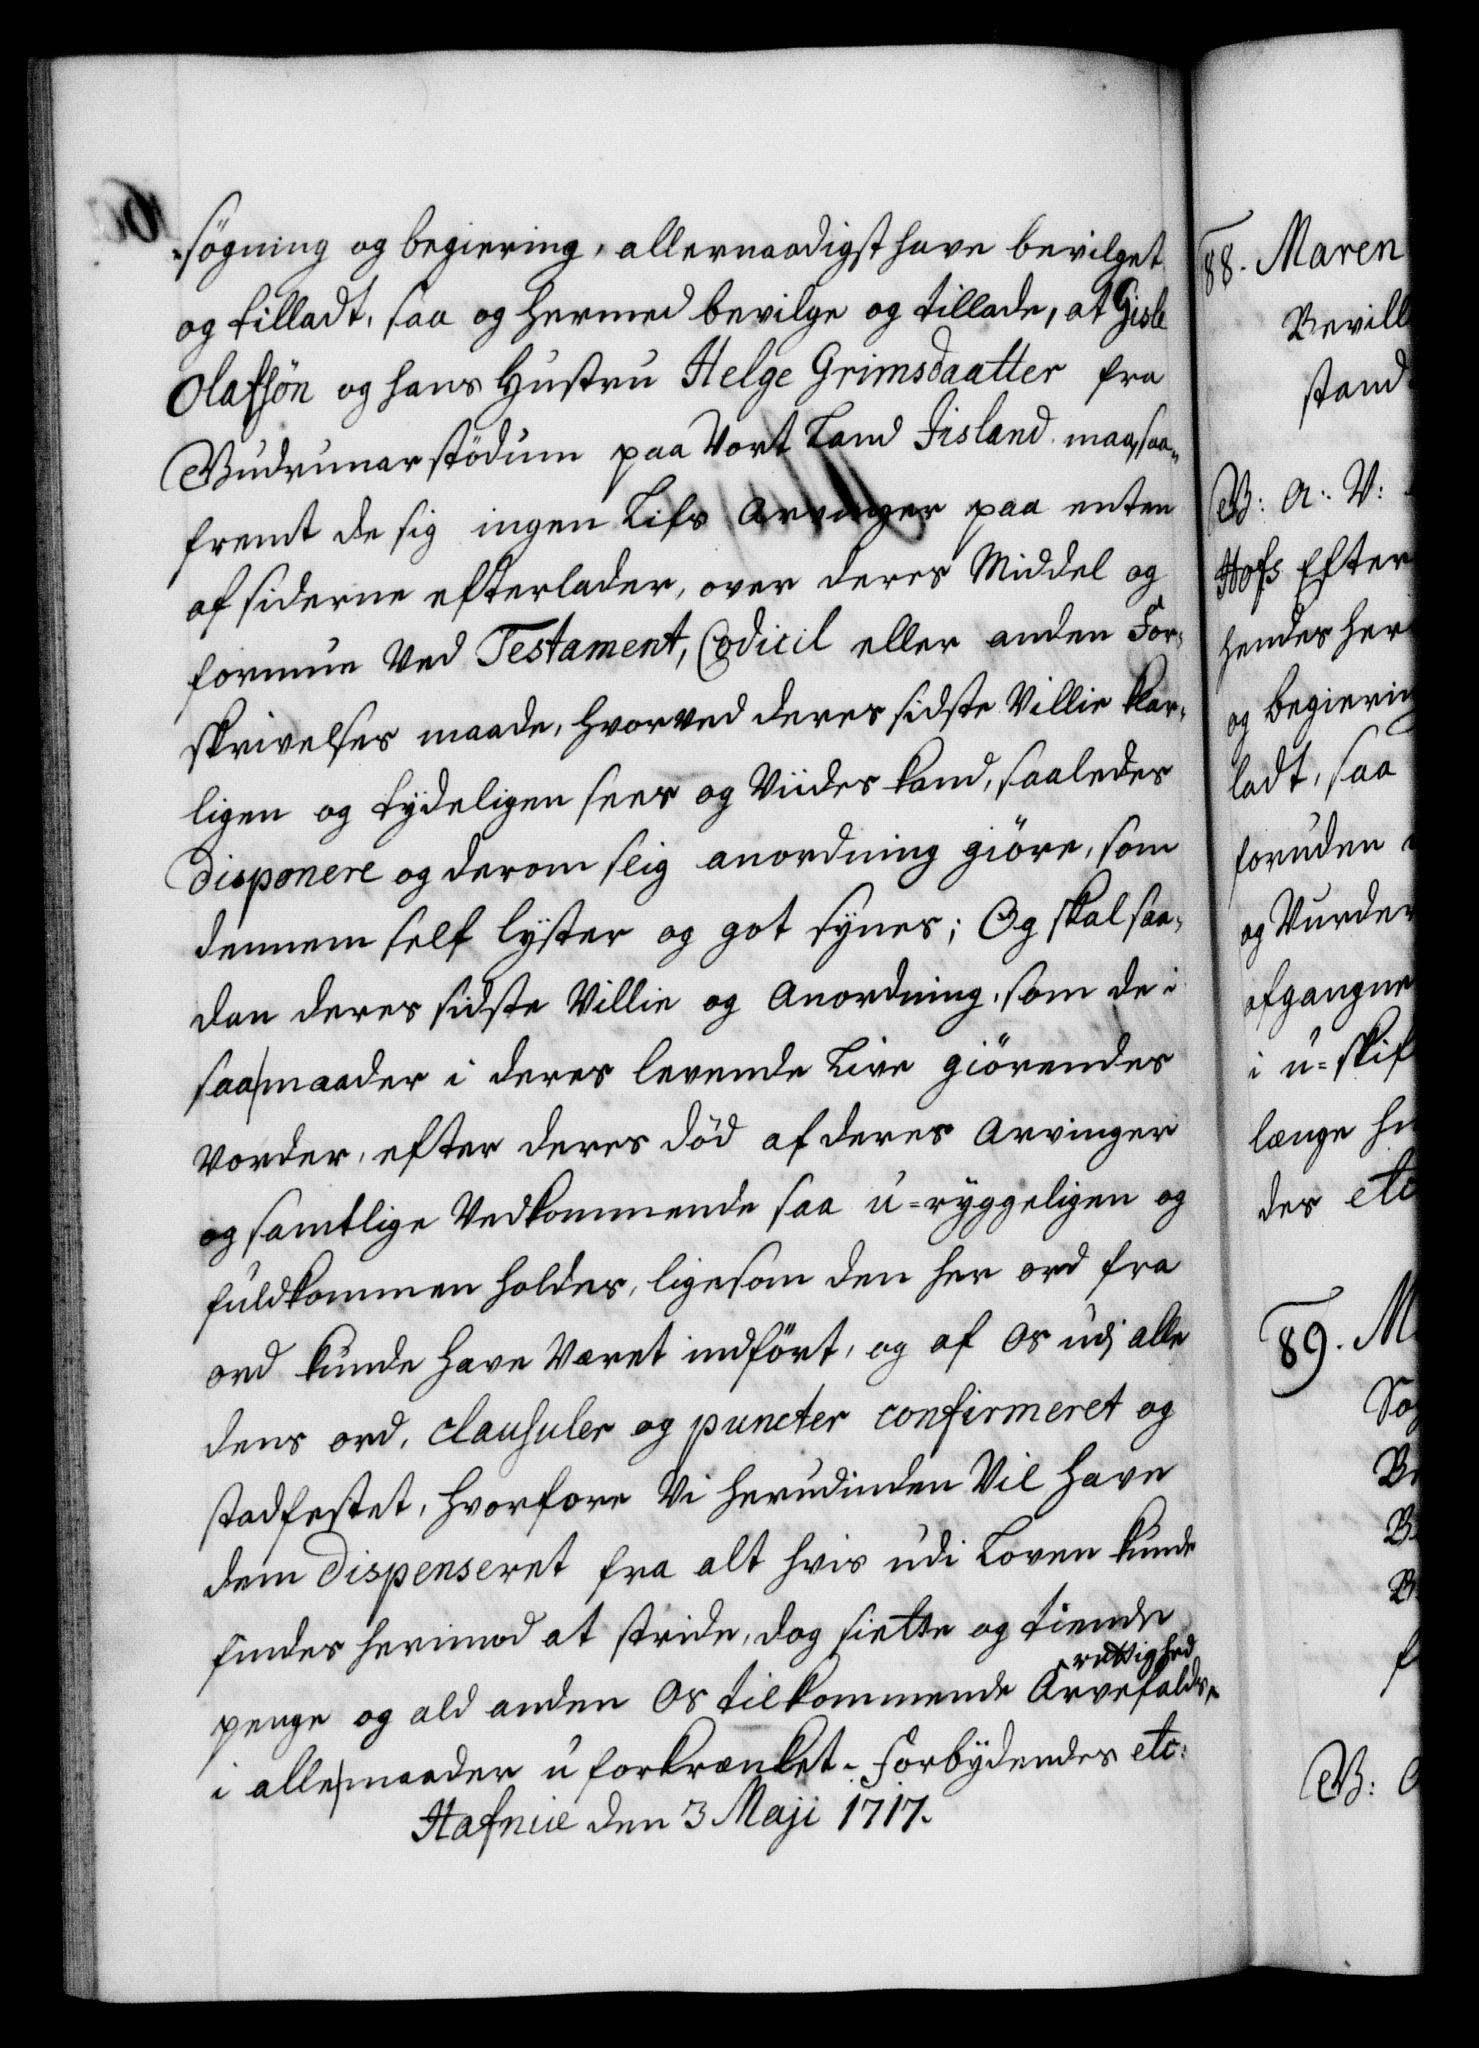 søgning og begiering, allernaadigst have bevilget
og tilladt, saa og hermed bevilge og tillade, at Gisle
Olafsøn og hans Hustru Helge Grimsdaatter fra
Gudrunarstödum paa Vort Land Jisland maa, saa„
fremt de sig ingen Lifs Arvinger paa enten
af siderne efterlader, over deres Middel og
formue Ved Testament, Codicil eller anden For„
skrivelses maade, hvorved deres sidste Villie klar„
ligen og tÿdeligen sees og Viides kand, saaledes
disponere og derom slig anordning giöre, som
dennem self lÿster og got sÿnes; Og skal saa„
dan deres sidste Villie og Anordning, som de i
saa|maader i deres levende Live giörendes
Vorder, efter deres död af deres Arvinger
og samtlige Vedkommende saa u=ryggeligen og
fuldkommen holdes, ligesom den her ord fra
ord kunde have Været indfört, og af Os udj alle
dens ord, clausuler og puncter confirmeret og
stadfestet, hvorfore Vi herudinden Vil have
dem dispenseret fra alt hvis udi Loven kunde
findes herimod at stride, dog siette og tiende
penge og ald anden Os tilkommende Arvefalds„
rettighed
i alle|maader u forkrænket. Forbÿdendes etc:
Hafniæ den 3 Maji 1717.
88. Maren
Bevill
stand
G: A: V:
Hofs Efter
hendes her
og begierin
ladt, saa
foruden
og Vurder
afgangne
i u=skif
længe h
des etc
89. M
So
B
B
B
f
G: